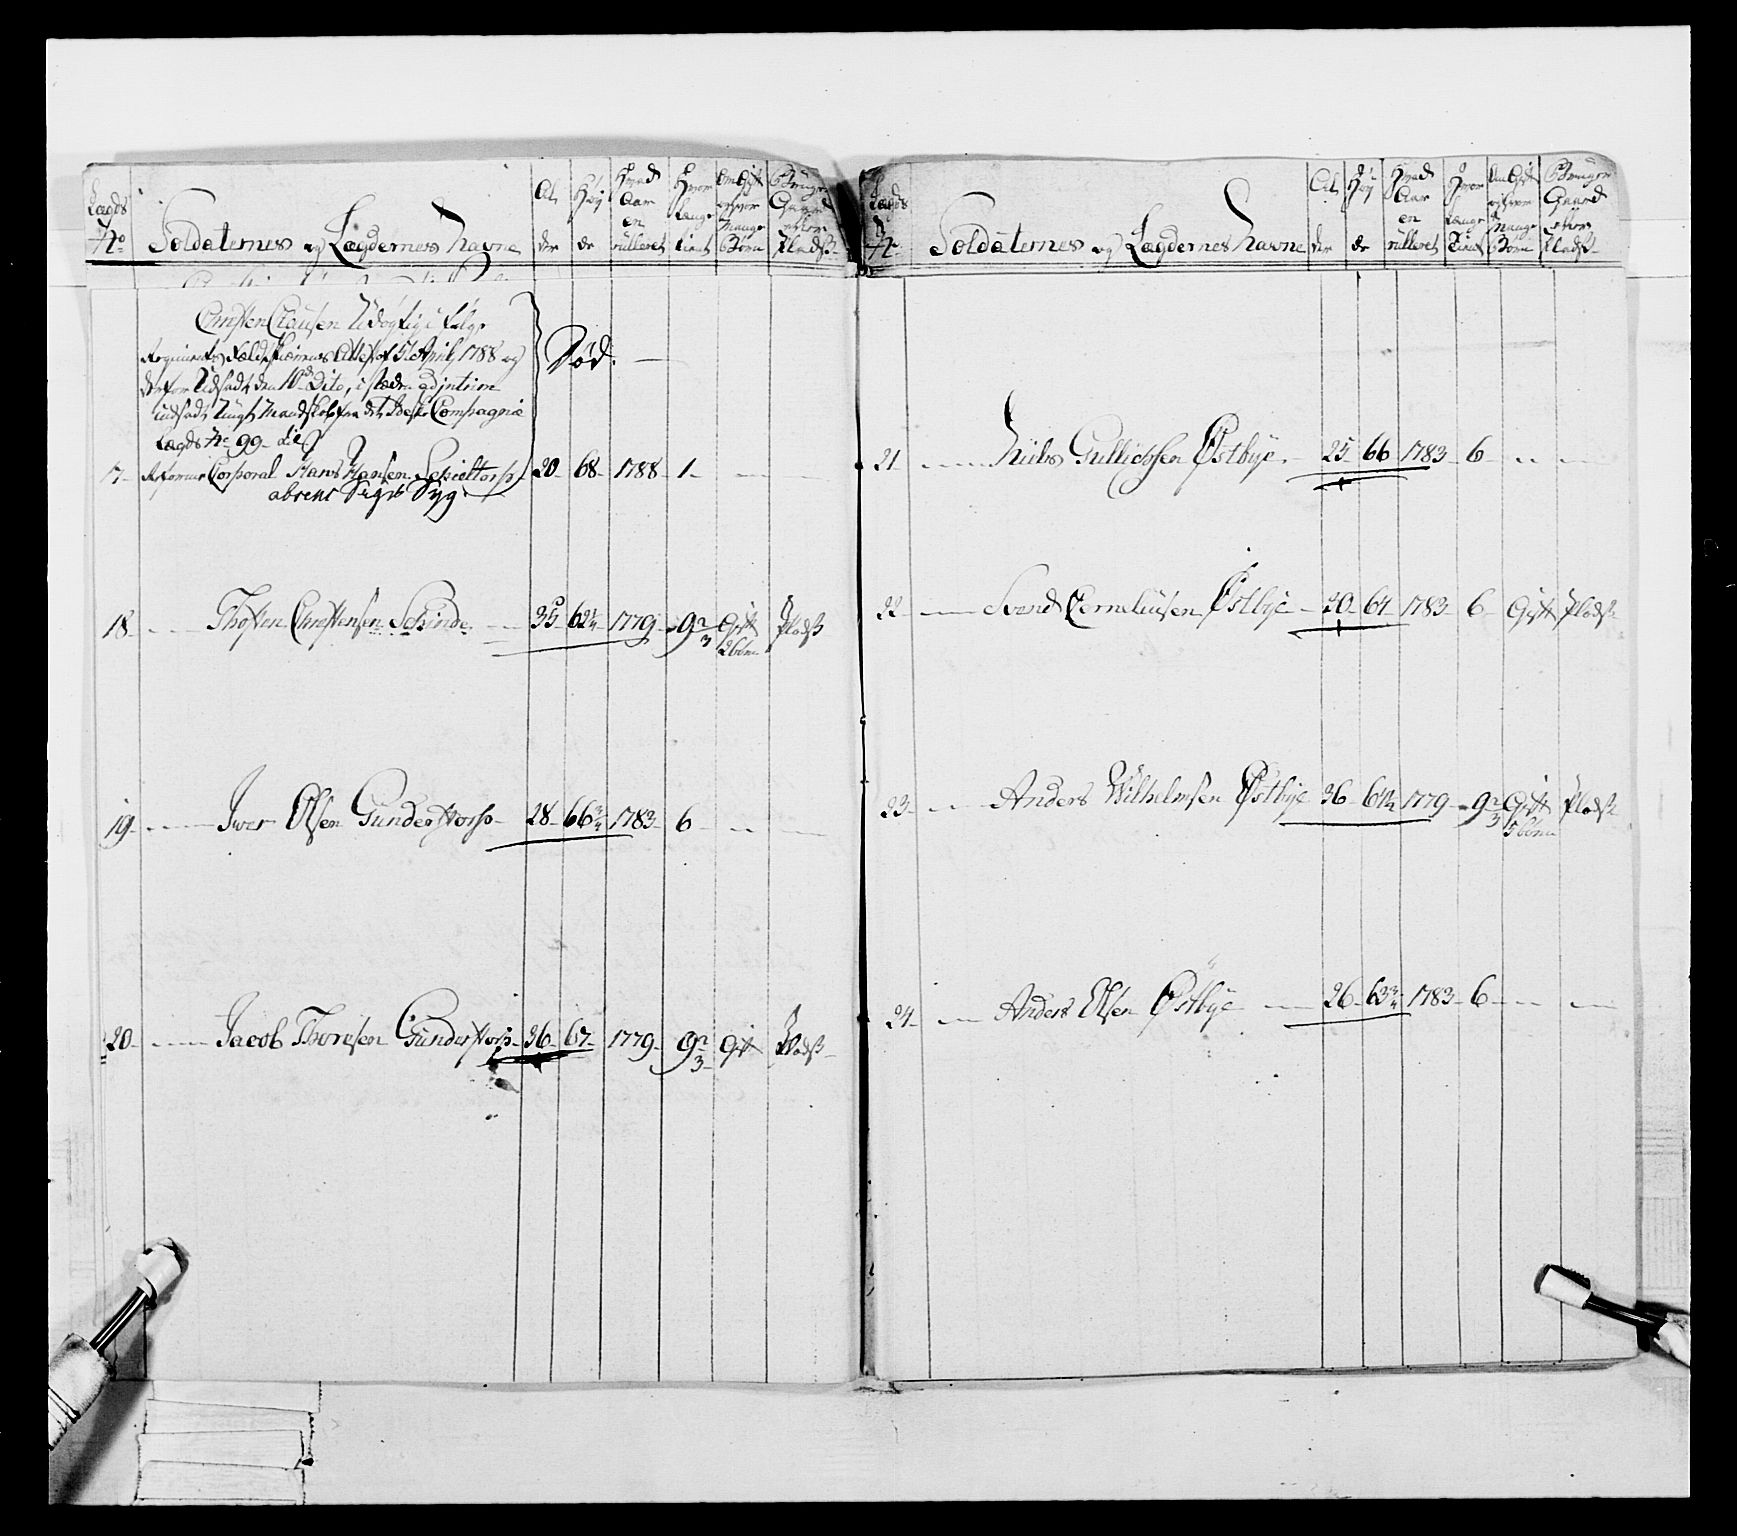 Lægds No
Soldaternes og Lægdernes Navne
Al der
Høy de
Hvad Aar en rulleret
Hvor længe tient
Om Gift og hvor Mange Børn
Bruger Gaard eller Plads
Christen Clausen Udøgtig i følge
Regiments Feldskiærens Attest af 5te April 1788 og
derfor Udsadt den 10de Dito, i stæden ad intrim
indsadt Ungt Mandskab fra det Compagnie
Lægds No 99
Død.
17 Reformeert Corporal Hans Hansen 20 68 1788 1
absent Syg
18 Thosten Christensen Schinde 35 62¼ 1779 9 2/3 Gift 2 børn Plads
19 Iver Olsen Gunderstorp 28 66¾ 1783 6
20 Jacob Thoresen Gunderstorp 36 67 1779 9 2/3 Gift Plads
Lægds No
Soldaternes og Lægdernes Navne
Al der
Høy de
Hvad Aar en rulleret
Hvor længe Tient
Om Gift og hvor Mange Børn
Bruger Gaard eller Plads
21 Niels Gullichsen Østbye 25 66 1783 6
22 Svend Cornelius­sen Østbye 20 64 1783 6 Gift Plads
23 Anders Wilhelmsen Østbye 36 64½ 1779 9 2/3 Gift 5 børn Plads
24 Anders Olsen Østbye 26 63¾ 1783 6